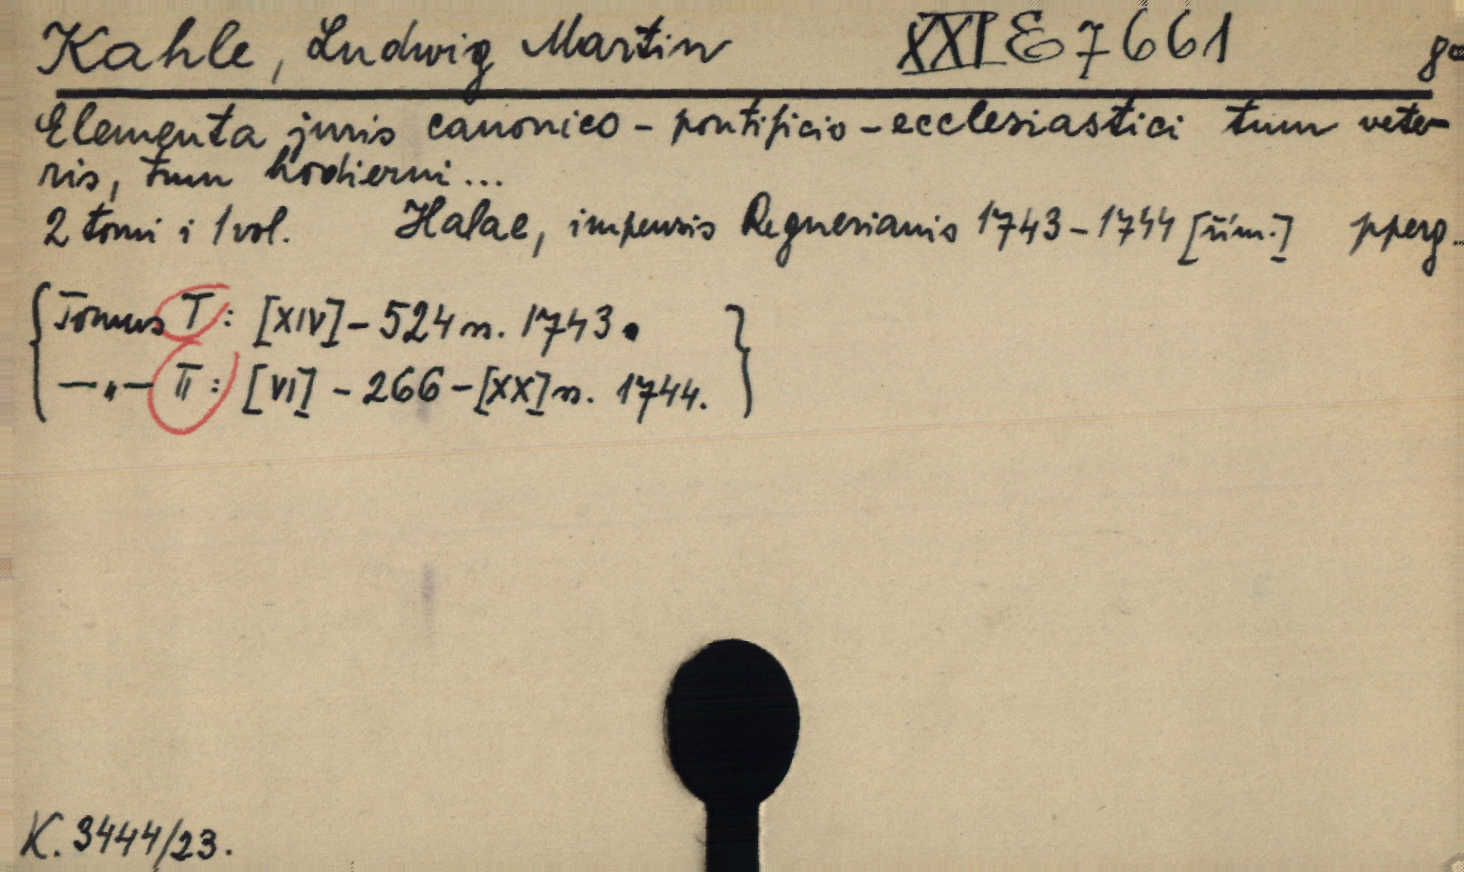 Kahle, Ludwig Martin XXI E 7661 8°
Elementa juris canonico - pontificio - ecclesiastici tum vete-
ris, tum hodierni...
2 tomi i 1 vol. Halae, impensis Regnerianis 1743-1744 [řím.] pperg.
Tomus I: [XIV] - 524 s. 1743.
—„— II: [VI] - 266 - [XX] s. 1744.
K. 3444/23.